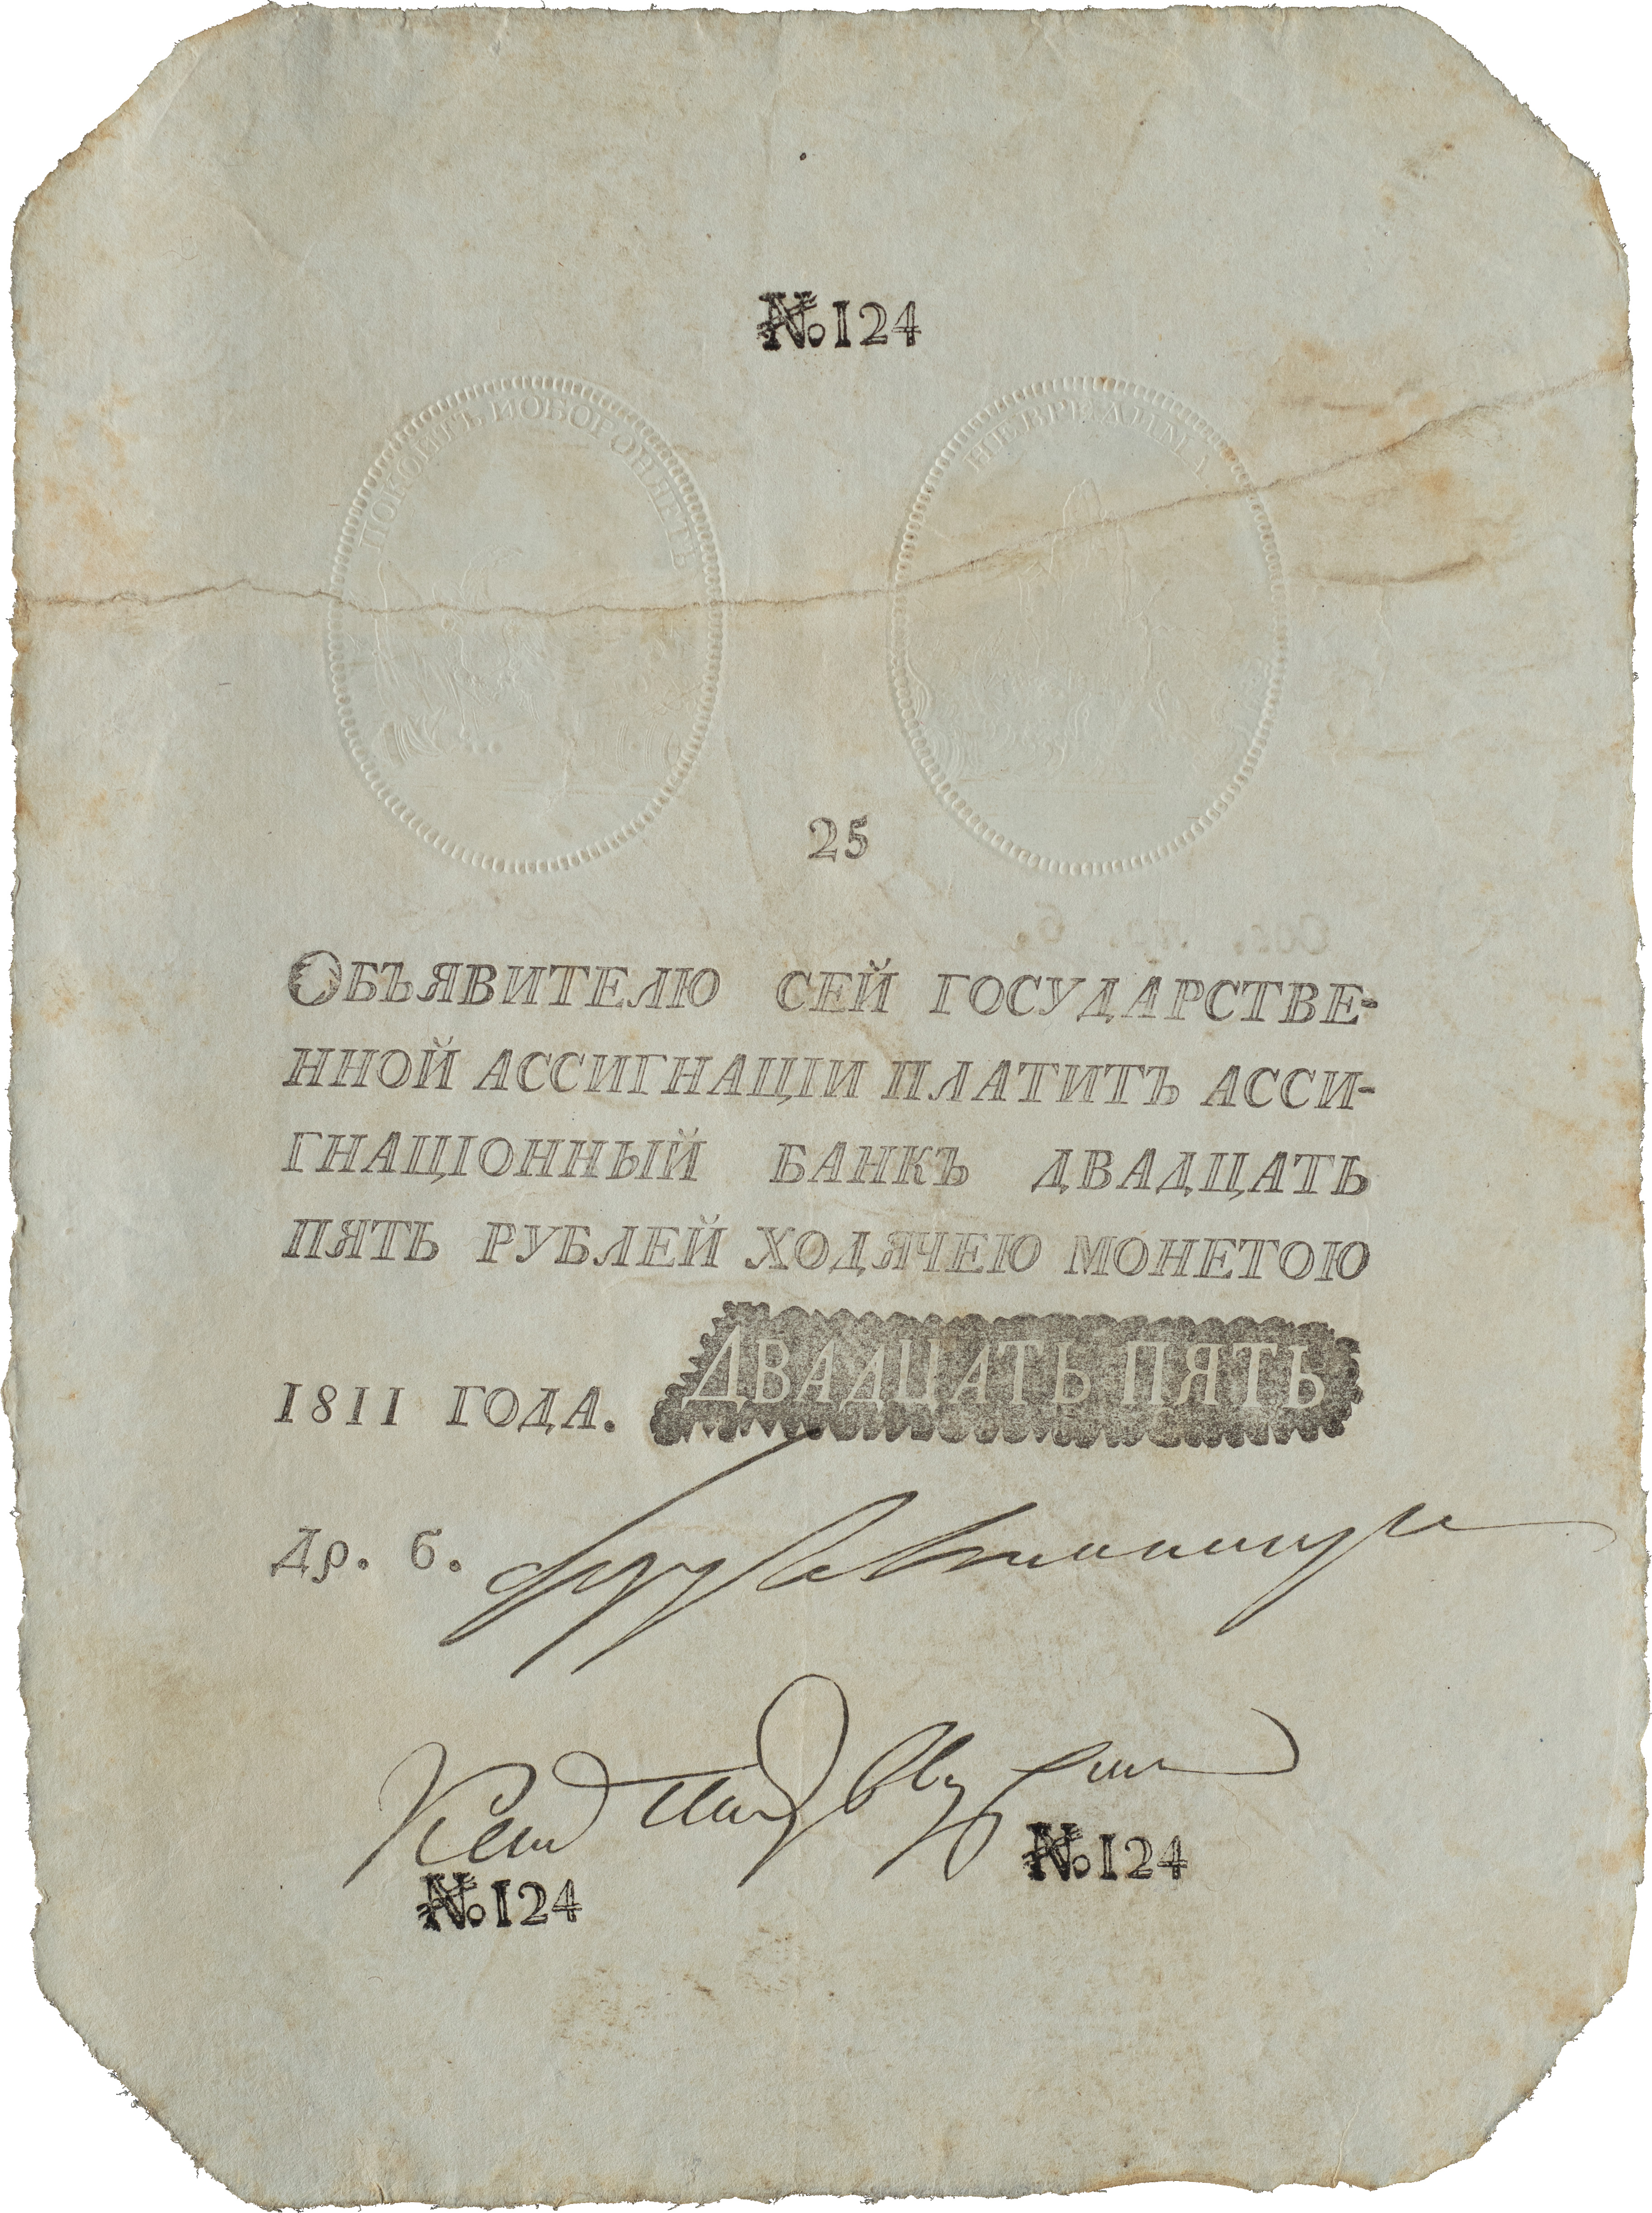 № 124
ПОКОИТЪ И ОБОРОНЯЕТЪ
НЕВРЕДИМА
25
ОБЪЯВИТЕЛЮ СЕЙ ГОСУДАРСТВЕ-
ННОЙ АССИГНАЦIИ ПЛАТИТЪ АССИ-
ГНАЦIОННЫЙ БАНКЪ ДВАДЦАТЬ
ПЯТЬ РУБЛЕЙ ХОДЯЧЕЮ МОНЕТОЮ
1811 ГОДА. ДВАДЦАТЬ ПЯТЬ
Др. б.
№ 124
№ 124